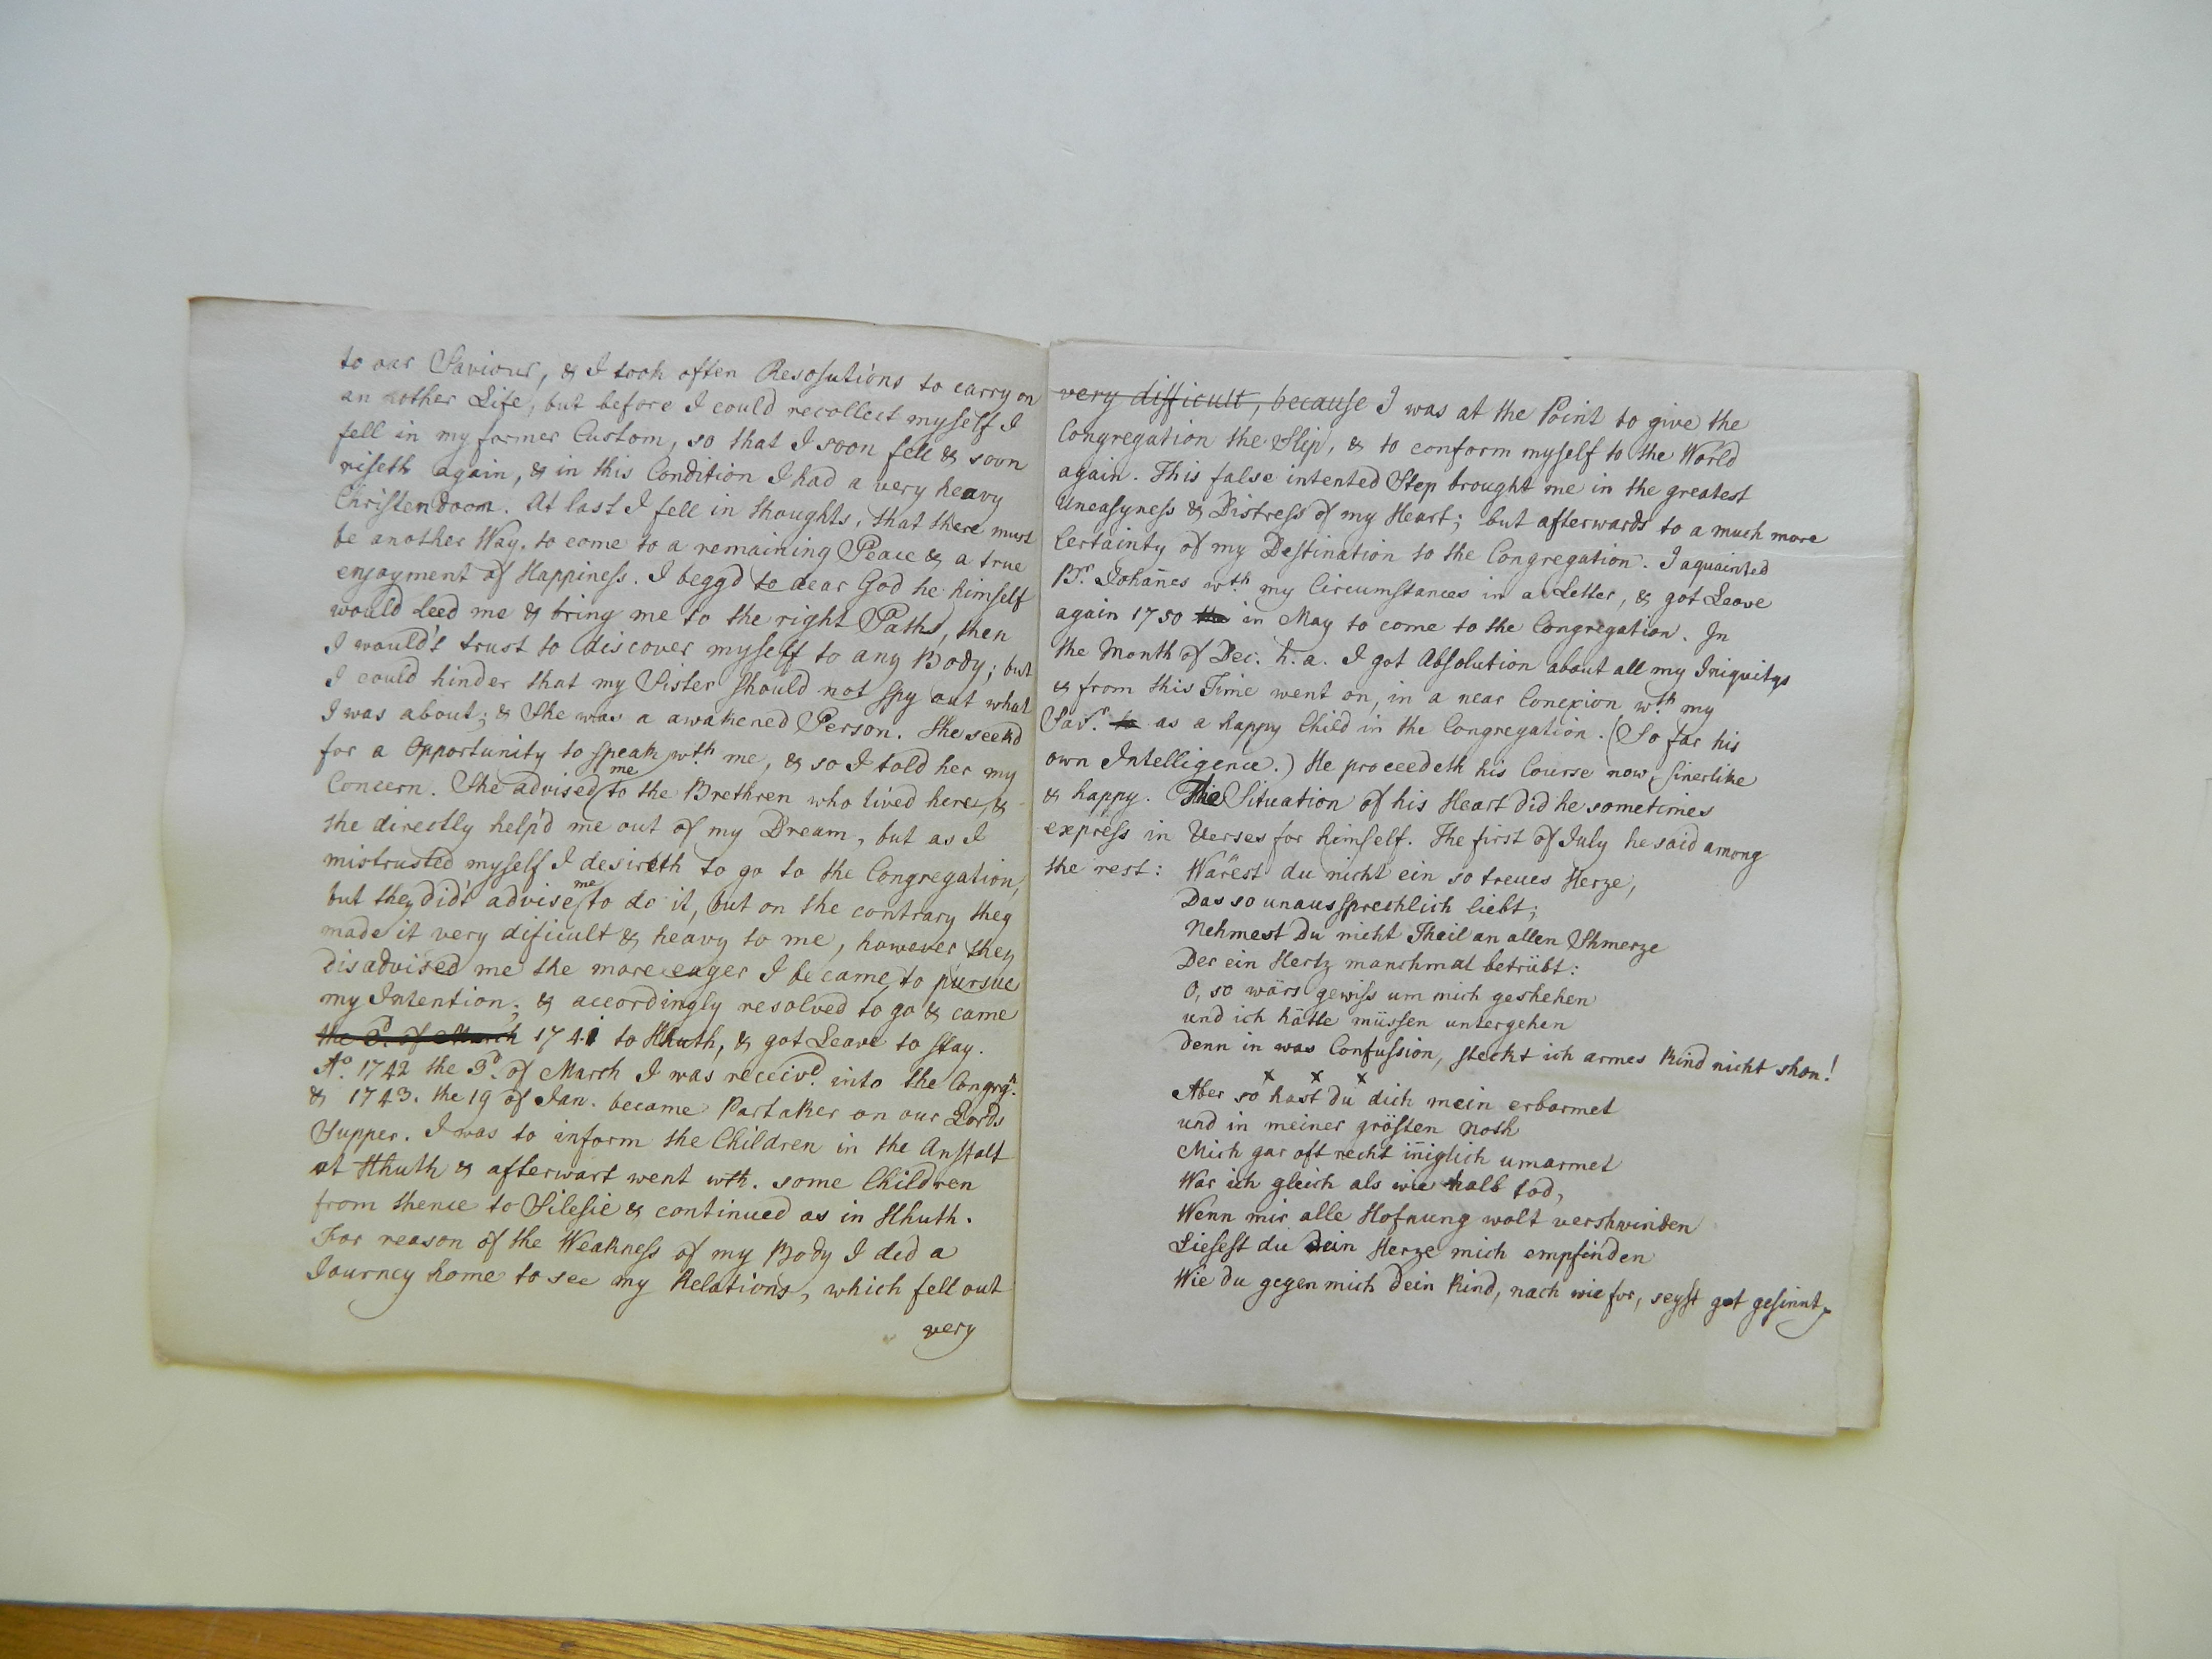 to our Saviour, & I took often Resolutions to carry on
an nother Life, but before I could recollect myself I
fell in my former Custom, so that I soon fell & soon
riseth again, & in this Condition I had a very heavy
Christendoom. At last I fell in thoughts, that there must
be another Way, to come to a remaining Peace & a true
enjoyment of Happiness. I begg'd to dear God he himself
would leed me & bring me to the right Paths, then
I would't trust to discover myself to any Body; but
I could hinder that my Sister should not spy out what
I was about; & She was a awakened Person. She seekd
for a Opportunity to speak wth me, & so I told her my
Concern. She advised me to the Brethren who lived here, &
she directly help'd me out of my Dream, but as I
mistrusted myself I desireth to go to the Congregation,
but they did't advise me to do it, but on the contrary they
made it very dificult & heavy to me, however they
disadvised me the more eager I became to pursue
my Intention; & accordingly resolved to go & came
the 3d. of March 1741 to Hhuth, & got Leave to stay.
Ao. 1742 the 3d. of March I was receivd. into the Congrgn.
& 1743. the 19 of Jan. became Partaker on our Lords
Supper. I was to inform the Children in the Anstalt
at Hhuth & afterwart went wth. some Children
from thence to Silesie & continued as in Hhuth.
For reason of the Weakness of my Body I did a
Journey home to see my Relations, which fell out
very
very difficult, because I was at the Point to give the
Congregation the Slip, & to conform myself to the World
again. This false intented Step brought me in the greatest
Uneasyness & Distress of my Heart; but afterwards to a much more
Certainty of my Destination to the Congregation. I aquainted
Br. Johan̄es wth. my Circumstances in a Letter, & got Leave
again 1750 the in May to come to the Congregation. In
the Month of Dec. h. a. I got Absolution about all my Iniquitys
& from this Time went on, in a near Conexion wth. my
Savr. to as a happy Child in the Congregation. (So far his
own Intelligence.) He proceedeth his Course now, sinerlike
& happy. The Situation of his Heart did he sometimes
express in Verses for himself. The first of July he said among
the rest: Wärest du nicht ein so treues Herze,
Das so unaussprechlich liebt;
Nehmest Du nicht Theil an allen Shmerze
Der ein Hertz manchmal betrübt:
O, so wärs gewiss um mich geshehen
und ich hätte müssen untergehen
Denn in was Confussion, steckt ich armes Kind nicht shon!
x x x
Aber so hast du dich mein erbarmet
und in meiner grösten Noth
Mich gar oft recht in̄iglich umarmet
War ich gleich als wie halb tod,
Wenn mir alle Hofnung wolt vershwinden
Liesest du Dein Herze mich empfinden
Wie du gegen mich Dein Kind, nach wie for, seyst gut gesinnt,